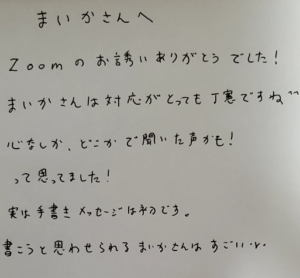 まいかさんへ
Zoomのお誘いありがとうでした!
まいかさんは対応がとっても丁寧ですね^^
心なしか、どこかで聞いた声かも!
って思ってました!
実は手書きメッセージは初です。
書こうと思わせられるまいかさんはすごい